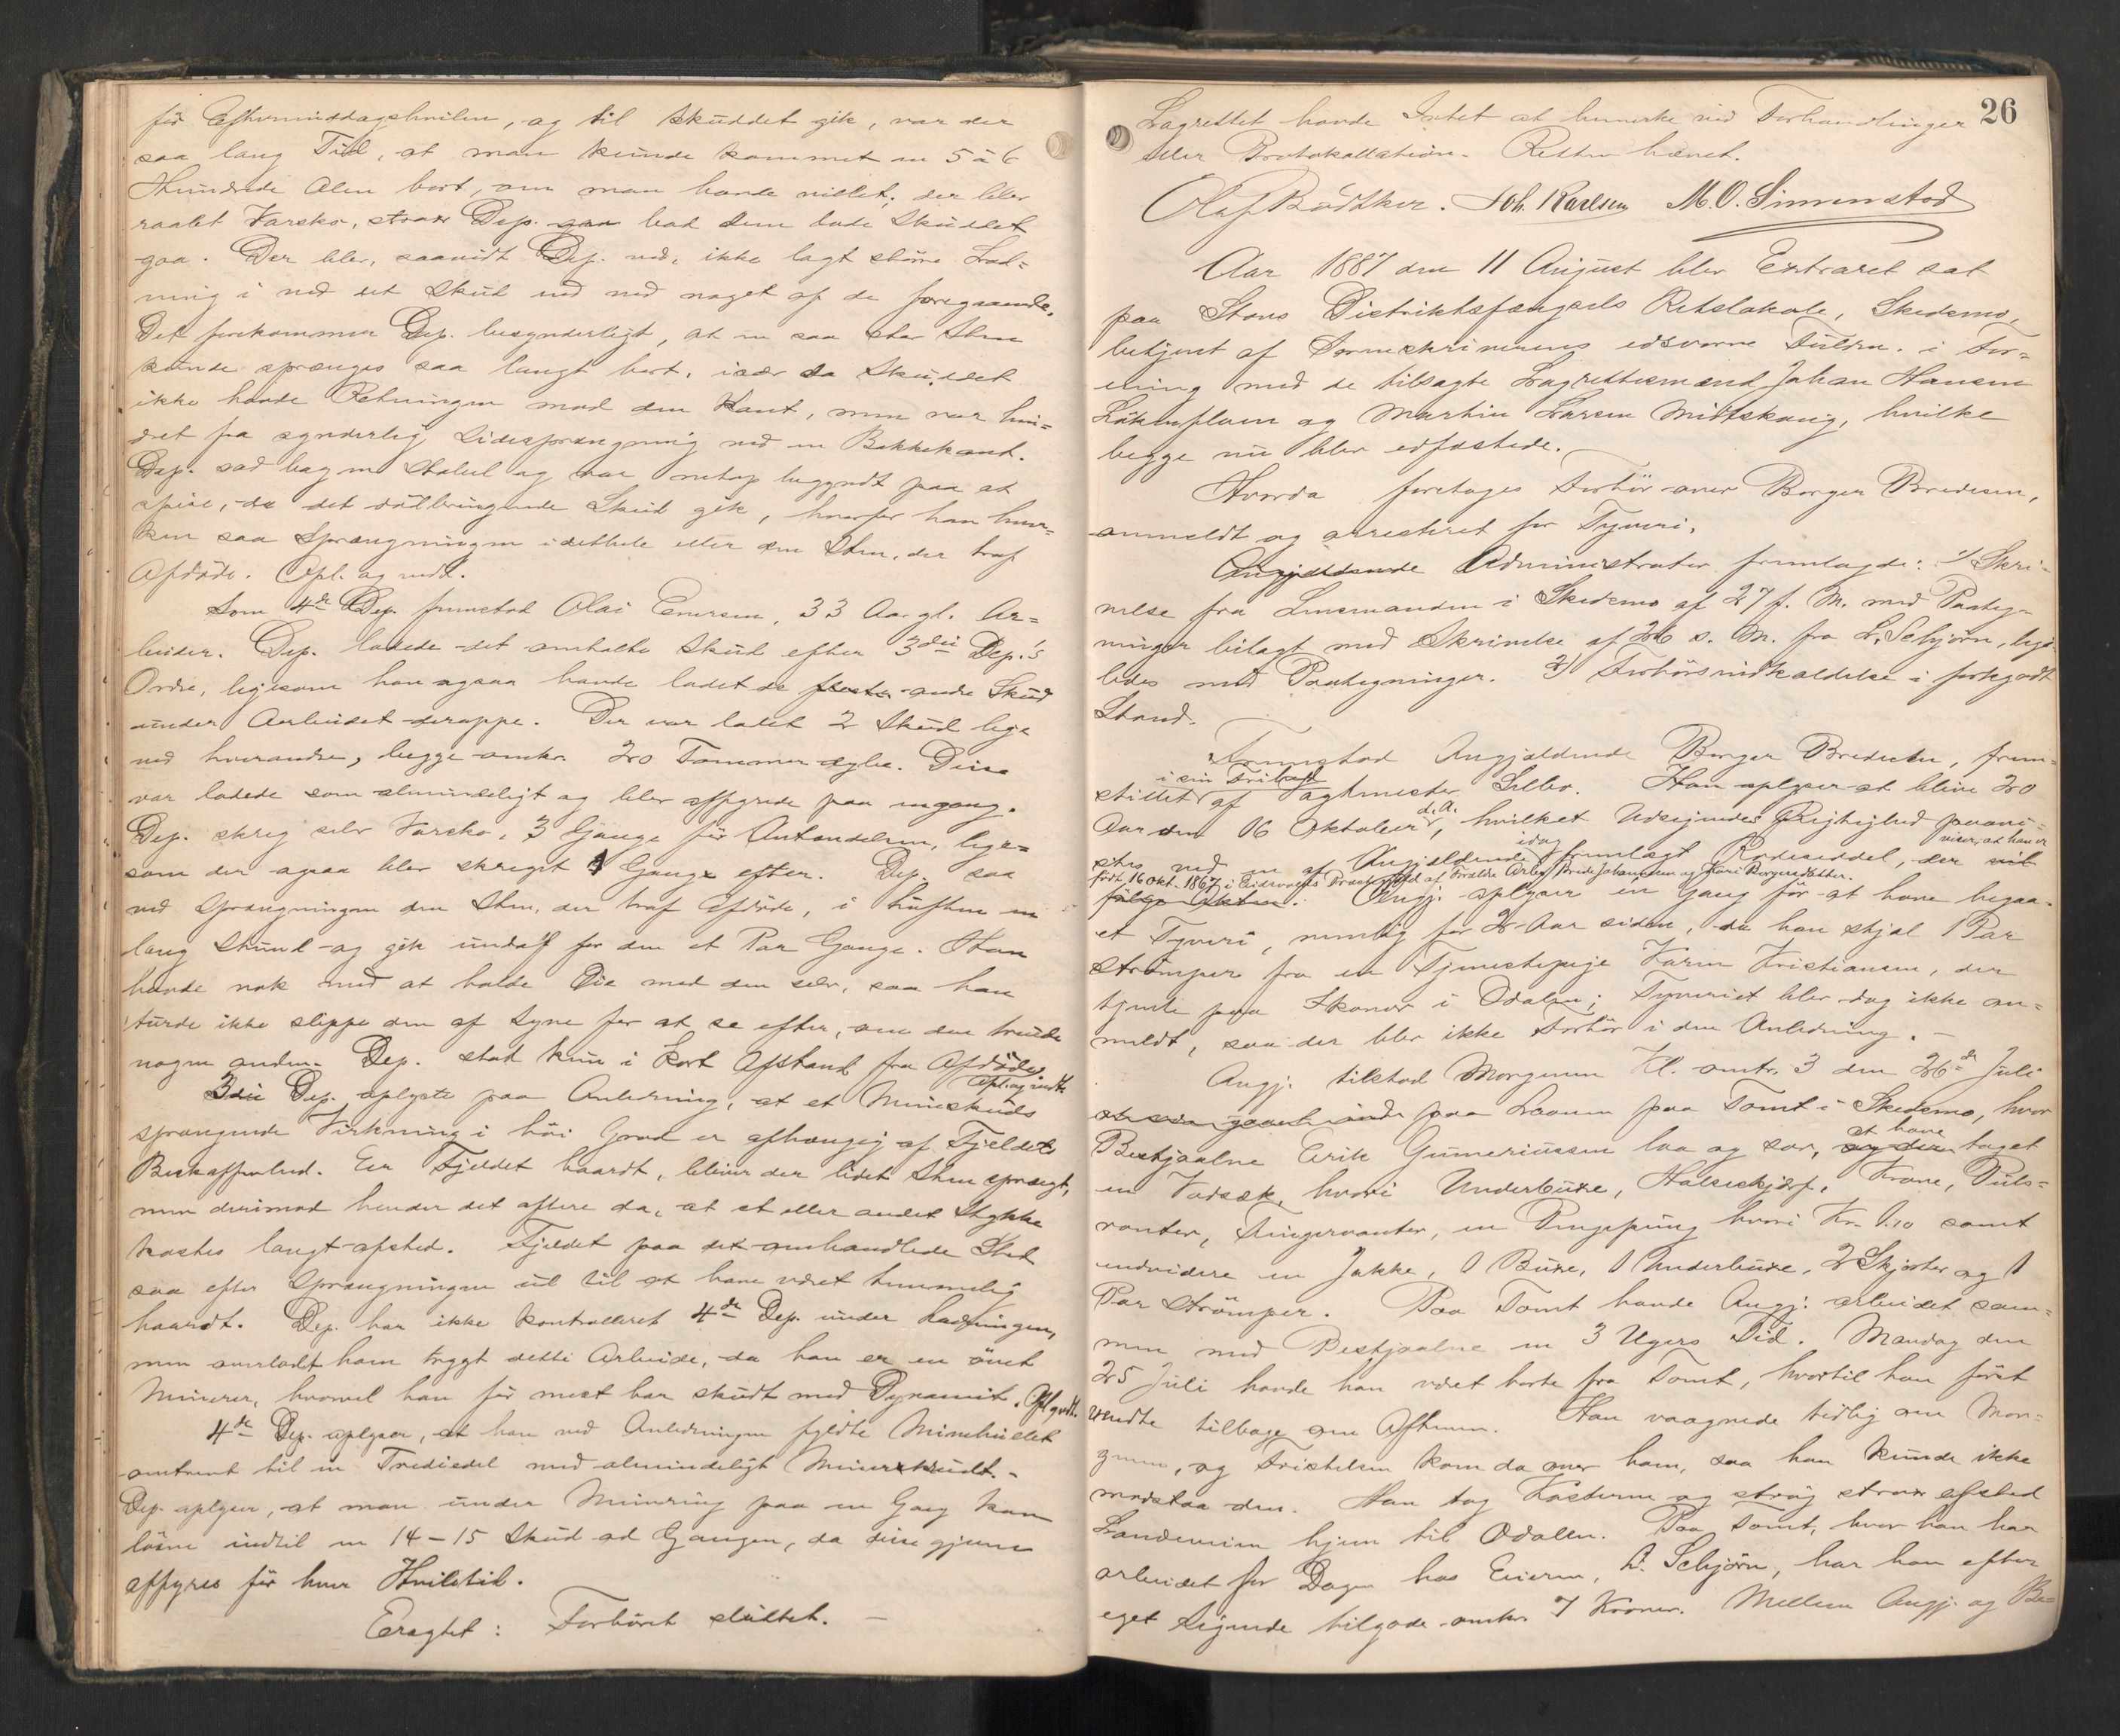 för Eftermiddagshvilen, og til Skuddet gik, var der
saa lang Tid, at man kunde kommet en 5 à 6
Hundrede Alen bort, om man havde villet; der blev
raabt Varsko, strax Dep. saa bad dem lade Skuddet
gaa. Der blev, saavidt Dep. ved, ikke lagt större Lad-
ning i ved det Skud end ved noget af de foregaaende.
Det forekommer Dep. besynderligt, at en saa stor Sten
kunde sprænges saa langt bort, især da Skuddet
ikke havde Retningen mod den Kant, men var hin-
dret fra synderlig Sidesprængning ved en Bakkekant.
Dep. sad bag en Stabel og var netop begyndt paa at
spise, da det dödbringende Skud gik, hvorfor han hver-
ken saa Sprængningen idethele eller den Sten, der traf
Afdöde. Opl. og vedt.
Som 4de Dep. fremstod Olai Enersen, 33 Aar gl. Ar-
beider. Dep. ladede det omtalte Skud efter 3die Dep.'s
Ordre, ligesom han ogsaa havde ladet de fleste andre Skud
under Arbeidet deroppe. Der var ladet 2 Skud lige
ved hverandre, begge omtr. 20 Tommer dybe. Disse
var ladede som almindeligt og blev affyrede paa engang.
Dep. skreg selv Varsko, 3 Gange för Antændelsen, lige-
som der ogsaa blev skreget 1 Gang efter. Dep. saa
ved Sprængningen den Sten, der traf Afdöde, i Luften en
lang Stund og gik undaf for den et Par Gange. Han
havde nok med at holde Öie med den selv, saa han
turde ikke slippe den af Syne for at se efter, om den truede
nogen anden. Dep. stod kun i kort Afstand fra Afdöde.
Opl. og vedt.
3die Dep. oplyste paa Anledning, at et Mineskuds
sprængende Virkning i höi Grad er afhængig af Fjeldets
Beskaffenhed. Er Fjeldet haardt, bliver der lidet Sten sprængt,
men derimod hender det oftere da, at et eller andet Stykke
kastes langt afsted. Fjeldet paa det omhandlede Sted
saa efter Sprængningen ud til at have været temmelig
haardt. Dep. har ikke kontrolleret 4de Dep. under Ladningen,
men overladt ham trygt dette Arbeide, da han er en övet
Minerer, hvorvel han för mest har skudt med Dynamit. Opl. og vedt.
4de Dep. oplyser, at han ved Anledningen fyldte Minehullet
omtrent til en Trediedel med almindeligt Minerkrudt.
Dep. oplyser, at man under Minering paa en Gang kan
lösne indtil en 14-15 Skud ad Gangen, da disse gjerne
affyres för hver Hviletid.
Eragtet: Forhöret sluttet. —
26
Lagrettet havde Intet at bemerke ved Forhandlinger
eller Protokollation. Retten hævet.
Olaf Bödtker. Joh. Karlsen M. O. Simenstad
Aar 1887 den 11 August blev Extraret sat
paa Strøms Distriktsfængsels Retslokale, Skedsmo,
betjent af Sorenskriverens edsvorne Fuldm. i For-
ening med de tilsagte Lagrettesmænd Johan Hansen
Lökenflaen og Martin Larsen Midtskoug, hvilke
begge nu blev edfæstede.
Hvorda foretoges Forhör over Borger Bredesen,
anmeldt og arresteret for Tyveri.
Angjældende Administrator fremlagde: 1) Skri-
velse fra Lensmanden i Skedsmo af 27 f. M. med Pateg-
ninger bilagt med Skrivelse af 26 s. M. fra L. Schjörn, lige-
ledes med Paategninger. 2) Forhörsindkaldelse i forkyndt
Stand.
Fremstod Angjældende Borger Bredesen, frem-
i sin Frihed
stillet af Vagtmester Lillo. Han oplyser at blive 20
Aar den 16 Oktober d. A., hvilket Udsigendes Rigtighed paavi-
stes ved en af Angjældende idag fremlagt Rodeseddel, der viser, at han er
født 16 Okt. 1867 i Eidsvold
følge Akten. Angj. oplyser en Gang för at have begaa-
et Tyveri, nemlig for 2 Aar siden, da han stjal 1 Par
Strömper fra en Tjenestepige Karen Kristiansen, der
tjente paa Skonor i Odalen; Tyveriet blev dog ikke an-
meldt, saa der blev ikke Forhör i den Anledning. —
Angj. tilstod Morgenen Kl. omtr. 3 den 26de Juli
paa Laaven paa Tomt i Skedsmo, hvor
Bestjaalne Erik Gumeriussen laa og sov, at have taget
en Vadsæk, hvori Underbuxe, Halseskjærf, Krave, Puls-
vanter, Fingervanter, en Pengepung hvori Kr. 0.10 samt
endvidere en Jakke, 1 Buxe, 1 Underbuxe, 2 Skjorter og 1
Par Strömper. Paa Tomt havde Angj. arbeidet sam-
men med Bestjaalne en 3 Ugers Tid. Mandag den
25 Juli havde han været borte fra Tomt, hvortil han först
vendte tilbage om Aftenen. Han vaagnede tidlig om Mor-
genen, og Fristelsen kom da over ham, saa han kunde ikke
modstaa den. Han tog Kosterne og strög strax afsted
Landeveien hjem til Odalen. Paa Tomt, hvor han har
arbeidet for Dagen hos Eieren, L. Schjörn, har han efter
eget Sigende tilgode omtr. 7 Kroner. Mellem Angj. og Be-